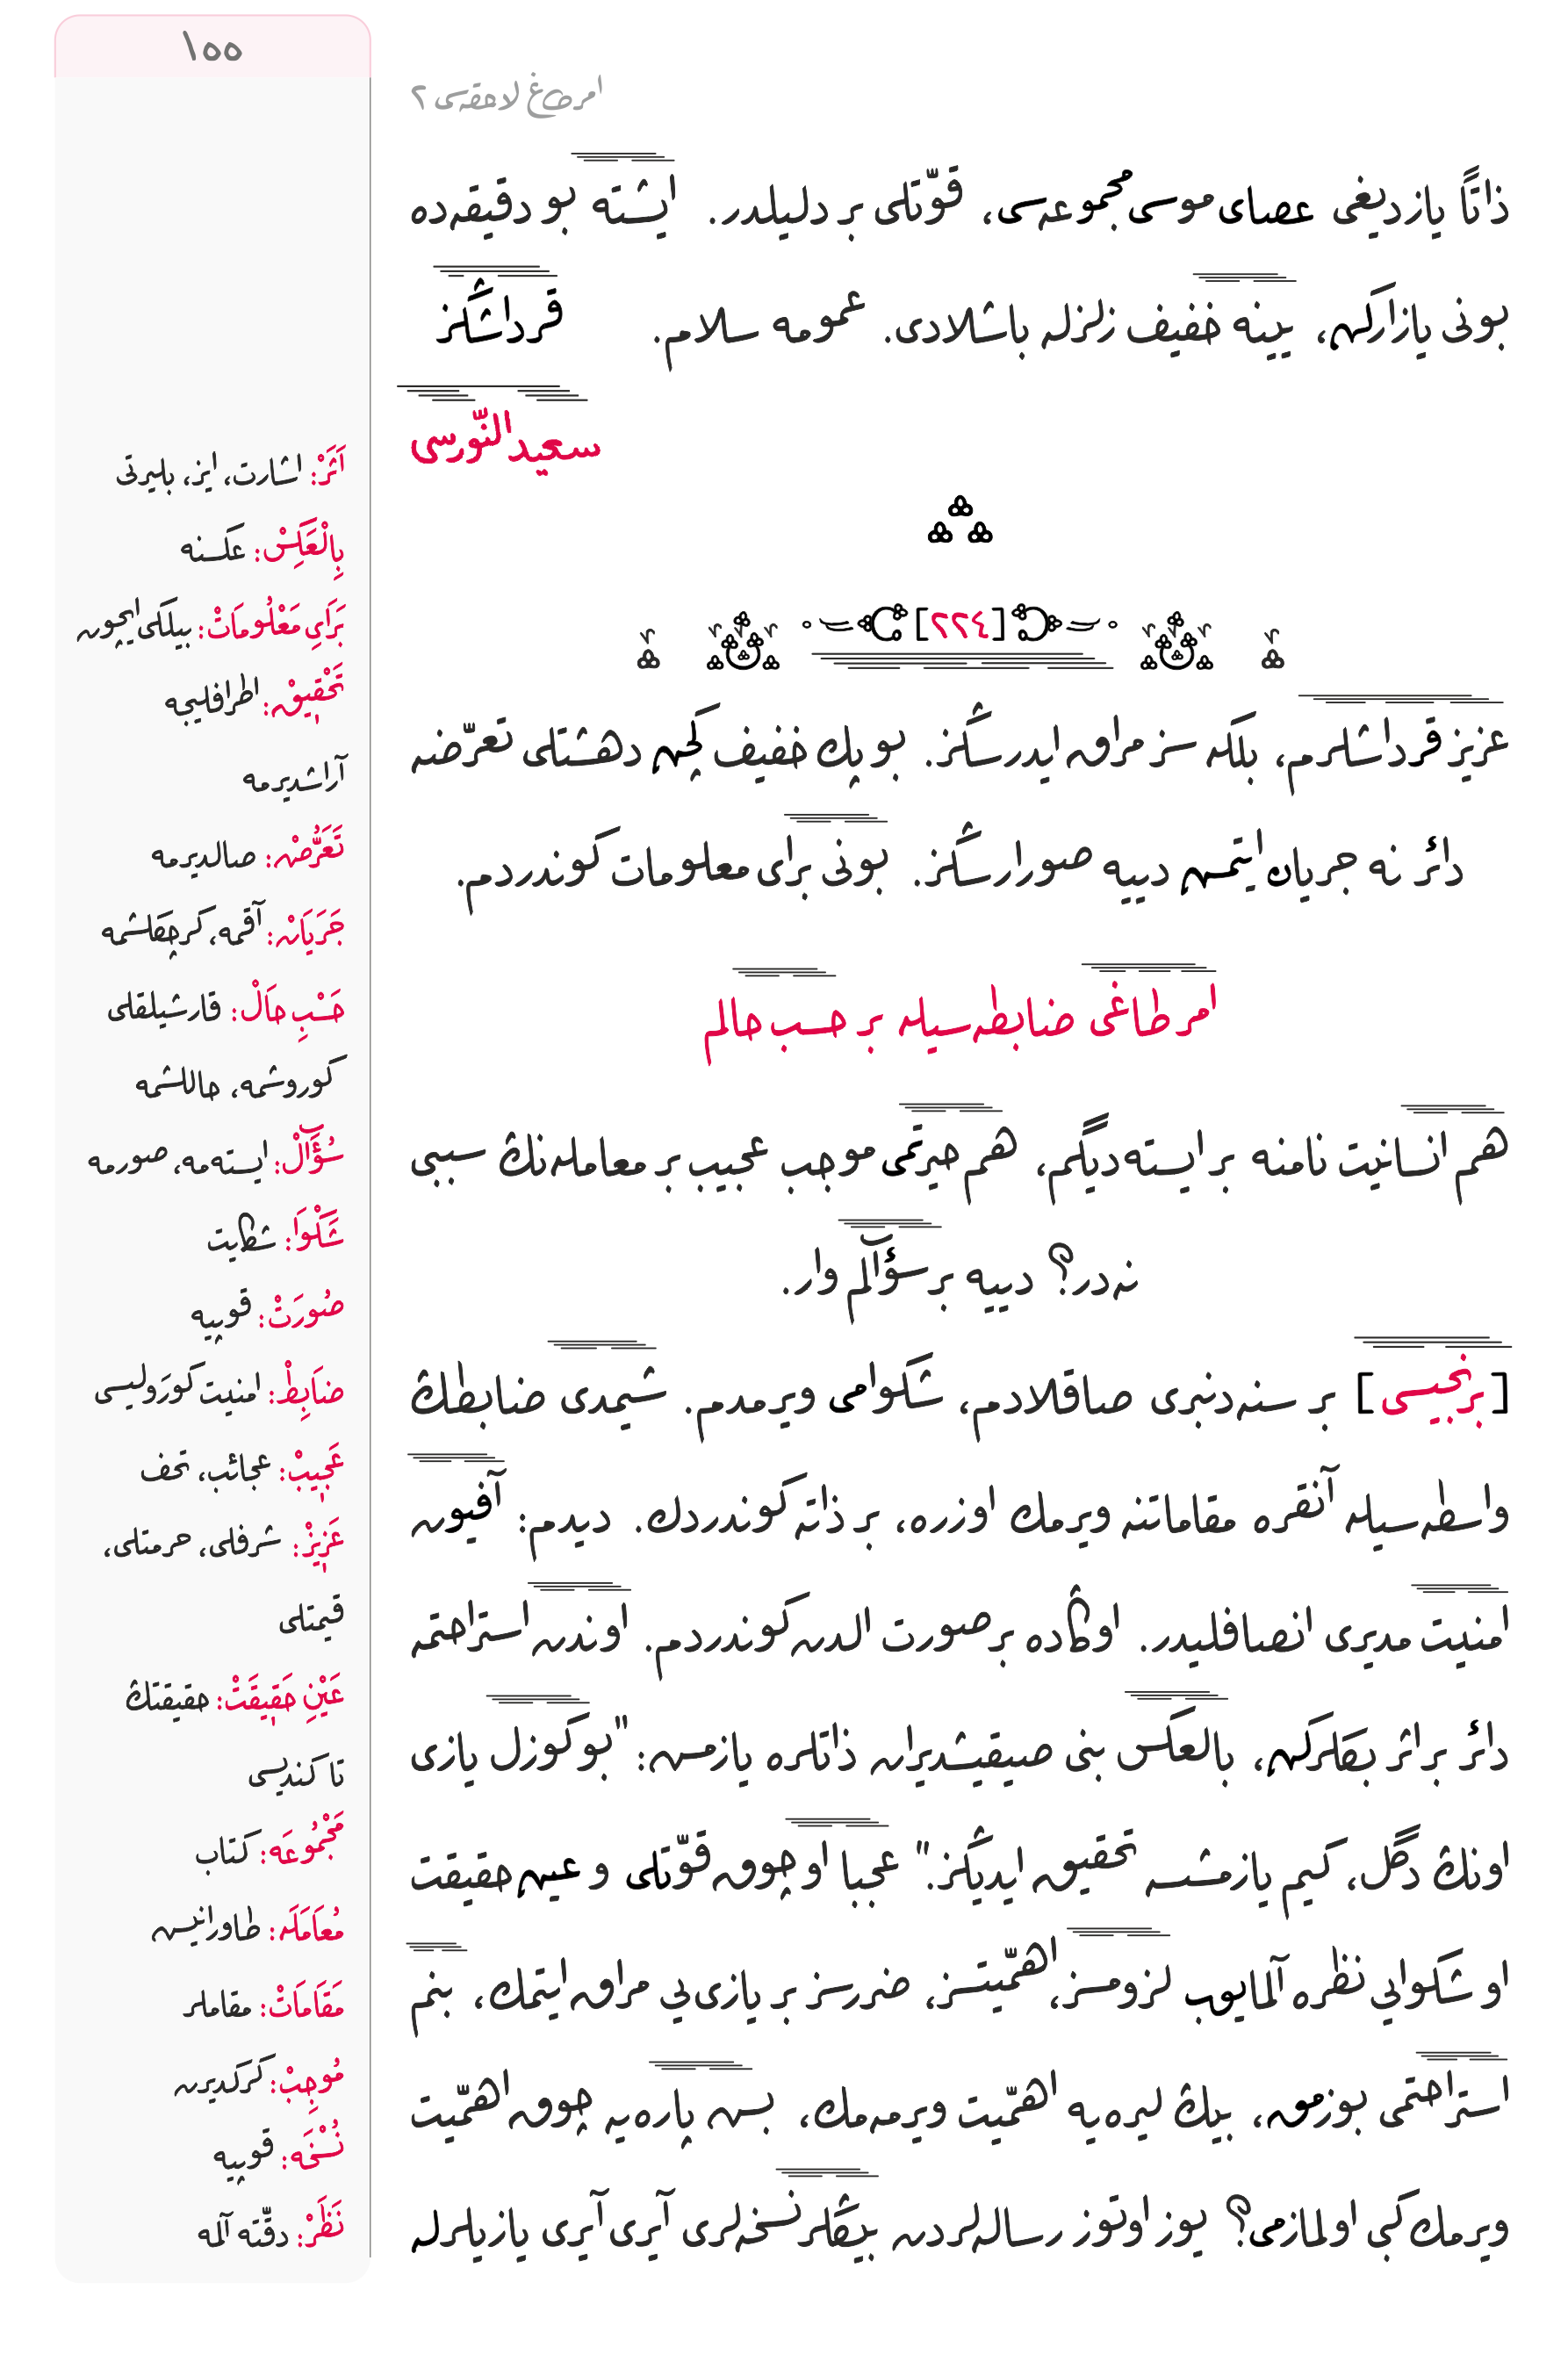 ١٥٥
امرطاغ لاحقه‌سی ٢
ذاتًا یازدیغی عصای موسی مجموعه‌سی، قوّتلی بر دلیلدر. ایشته بو دقیقه‌ده
بونی یازارکن، یینه خفیف زلزله باشلادی. عمومه سلام. قرداشڭز
سعید النّورسی
[٢٢٤]
عزیز قرداشلرم، بلکه سز مراق ایدرسڭز. بو پك خفیف کچن دهشتلی تعرّضنه
دائر نه جریان ایتمس دییه صورارسڭز. بونی برای معلومات کوندردم.
امرطاغی ضابطه‌سیله بر حسب حالم
هم انسانیت نامنه بر ایسته‌دیگم، هم حیرتمی موجب عجیب بر معامله‌نڭ سببی
نه‌در؟ دییه بر سؤآلم وار.
[برنجیسی] بر سنه‌دنبری صاقلادم، شکوامی ویرمدم. شیمدی ضابطڭ
واسطه‌سیله آنقره مقاماتنه ویرمك اوزره، بر ذاته کوندردك. دیدم: آفیون
امنیت مدیری انصافلیدر. اوڭاده بر صورت الدن کوندردم. اوندن استراحتمه
دائر بر اثر بکلرکن، بالعکس بنی صیقیشدیران ذاتلره یازمس: "بو کوزل یازی
اونڭ دگل، کیم یازمشسه تحقیق ایدیڭز." عجبا او چوق قوّتلی و عین حقیقت
او شکوایی نظره آلمایوب لزومسز، اهمّیتسز، ضررسز بر یازی‌یی مراق ایتمك، بنم
استراحتمی بوزمق، بیڭ لیره‌یه اهمّیت ویرمه‌مك، بس پاره‌یه چوق اهمّیت
ویرمك کبی اولمازمی؟ یوز اوتوز رساله‌لردن بیڭلر نسخه‌لری آیری آیری یازیلرله
اَثَرْ: اشارت، ایز، بلیرتی
بِالْعَكِسْ: عکسنه
بَرَایِ مَعْلُومَاتْ: بیلگی ایچون
تَحْقِیقْ: اطرافلیجه
آراشدیرمه
تَعَرُّضْ: صالدیرمه
جَرَیَانْ: آقمه، کرچکلشمه
حَسْبِ حَالْ: قارشیلقلی
کوروشمه، حاللشمه
سُؤَآلْ: ایسته‌مه، صورمه
شَكْوَا: شکایت
صُورَتْ: قوپیه
ضَابِطْ: امنیت کورَولیسی
عَجِیبْ: عجائب، تحف
عَزِیزْ: شرفلی، حرمتلی،
قیمتلی
عَیْنِ حَقِیقَتْ: حقیقتڭ
تا کندیسی
مَجْمُوعَه: کتاب
مُعَامَلَه: طاورانیس
مَقَامَاتْ: مقاملر
مُوجِبْ: کرکدیرن
نُسْخَه: قوپیه
نَظَرْ: دقّته آلمه